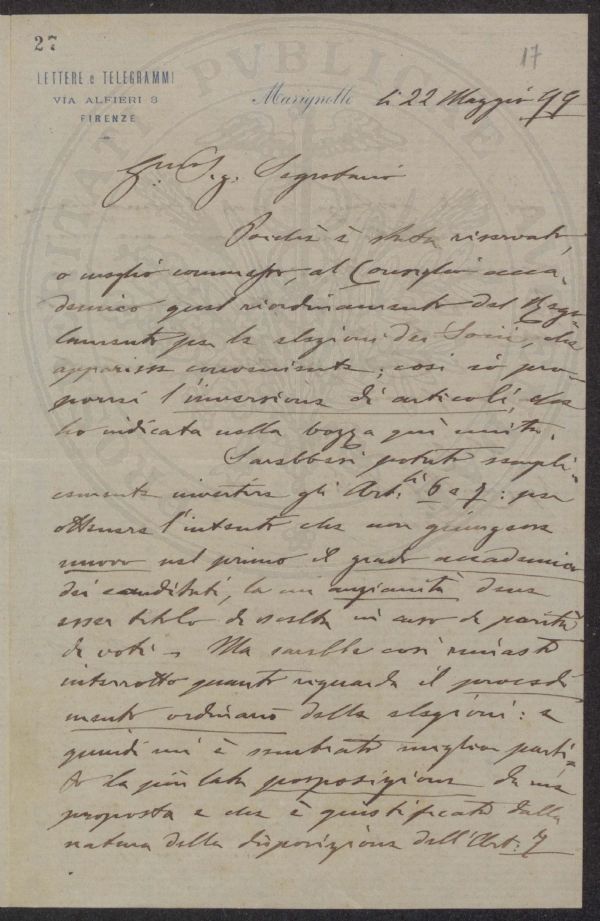 27
17
LETTERE e TELEGRAMMI
VIA ALFIERI 3
FIRENZE
Marignolle li 22 Maggio 99
Segretario
Poichè è stata riservato,
o meglio commesso, al Consiglio acca-
demico quel riordinamento del Rego-
lamento per le elezioni dei Soci, che
apparisse conveniente; così io pro-
porrei l'inversione di articoli, che
ho indicata nella bozza qui unita.
Sarebbesi potuto sempli-
cemente invertire gli Art.li 6 e 7: per
ottenere l'intento che non giungesse
nuovo nel primo il grado accademico
dei candidati, la cui anzianità deve
esser titolo di scelta in caso di parità
di voti. Ma sarebbe così rimasto
interrotto quanto riguarda il procedi-
mento ordinario delle elezioni: e
quindi mi è sembrato miglior parti-
to la più lata posposizione da me
proposta e che è giustificata dalla
natura della disposizione dell'Art: 7